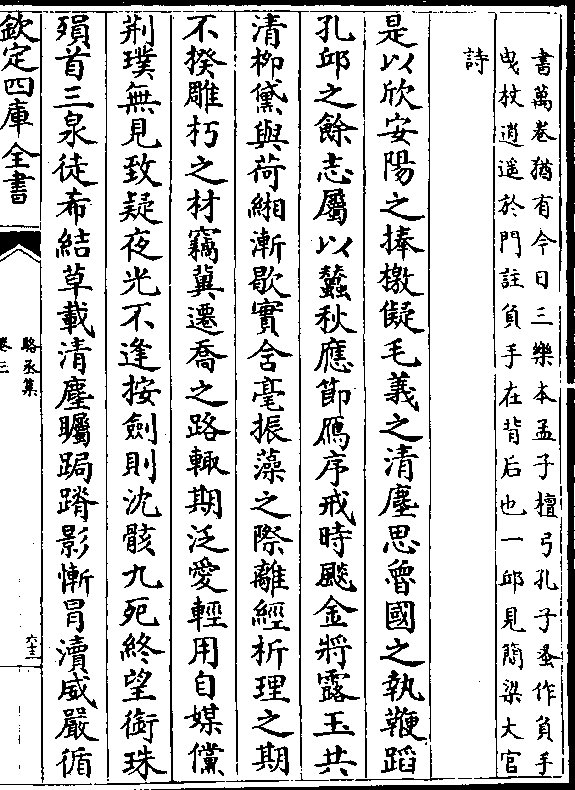 書萬卷猶有今日三樂本孟子檀弓孔子蚤作負手
曳杖逍遥於門註負手在背后也一邱見簡梁大官
詩
是以欣安陽之捧檄儗毛義之清塵思魯國之執鞭蹈
孔邱之餘志屬以蠶秋應節鴈序戒時飈金將露玉共
清柳黛與荷緗漸歇實含毫振藻之際離經析理之期
不揆雕朽之材竊冀遷喬之路輙期泛愛輕用自媒儻
荆璞無見致疑夜光不逢按劍則沈骸九死終望銜珠
殞首三泉徒希結草載清塵矚跼蹐影慚冒瀆威嚴循
欽定四庫全書
駱丞集
卷三
六十三